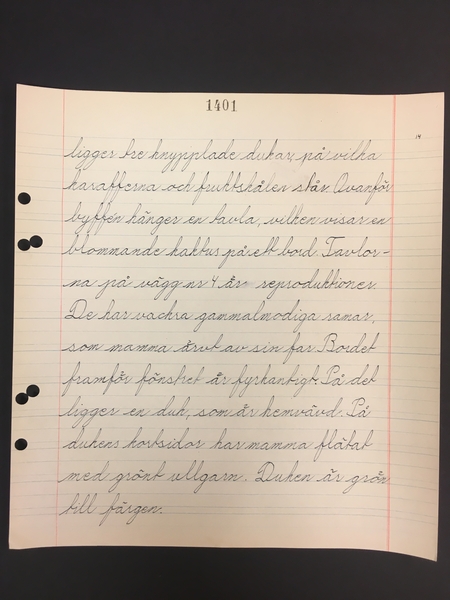 1401
14
ligger tre knypplade dukar, på vilka
karafferna och fruktskålen står. Ovanför
byffén hänger en tavla, vilken visar en
blommande kaktus på ett bord. Tavlor-
na på vägg nr 4 är reproduktioner.
De har vackra gammalmodiga ramar,
som mamma ärvt av sin far. Bordet
framför fönstret är fyrkantigt. På det
ligger en duk, som är hemvävd. På
dukens kortsidor har mamma flätat
med grönt ullgarn. Duken är grön
till färgen.